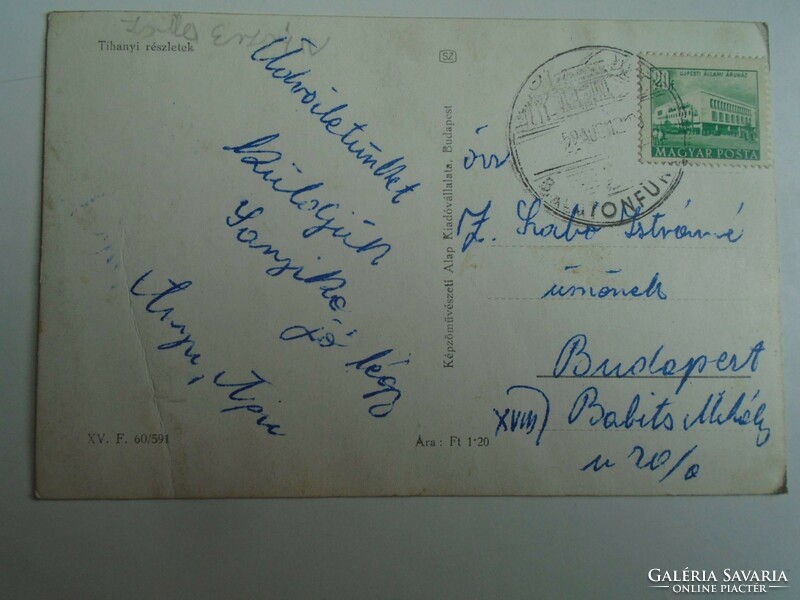 Tihanyi részletek
Üdvözletünket
küldjük
Sanyika jó légy
Anyu, Apu
XV. F. 60/591
Ára: Ft 1·20
Képzőművészeti Alap Kiadóvállalata, Budapest
SZ
BALATONFÜR
20f.
ÚJPESTI ÁLLAMI ÁRUHÁZ
MAGYAR POSTA
özv
Z. Szabó Istvánné
Budapest
XVIII) Babits Mihály
u 20/a
GALÉRIA SAVARIA
ONLINE PIACTÉR